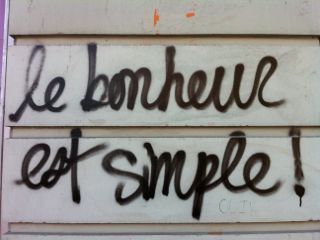 le bonheur
est simple!